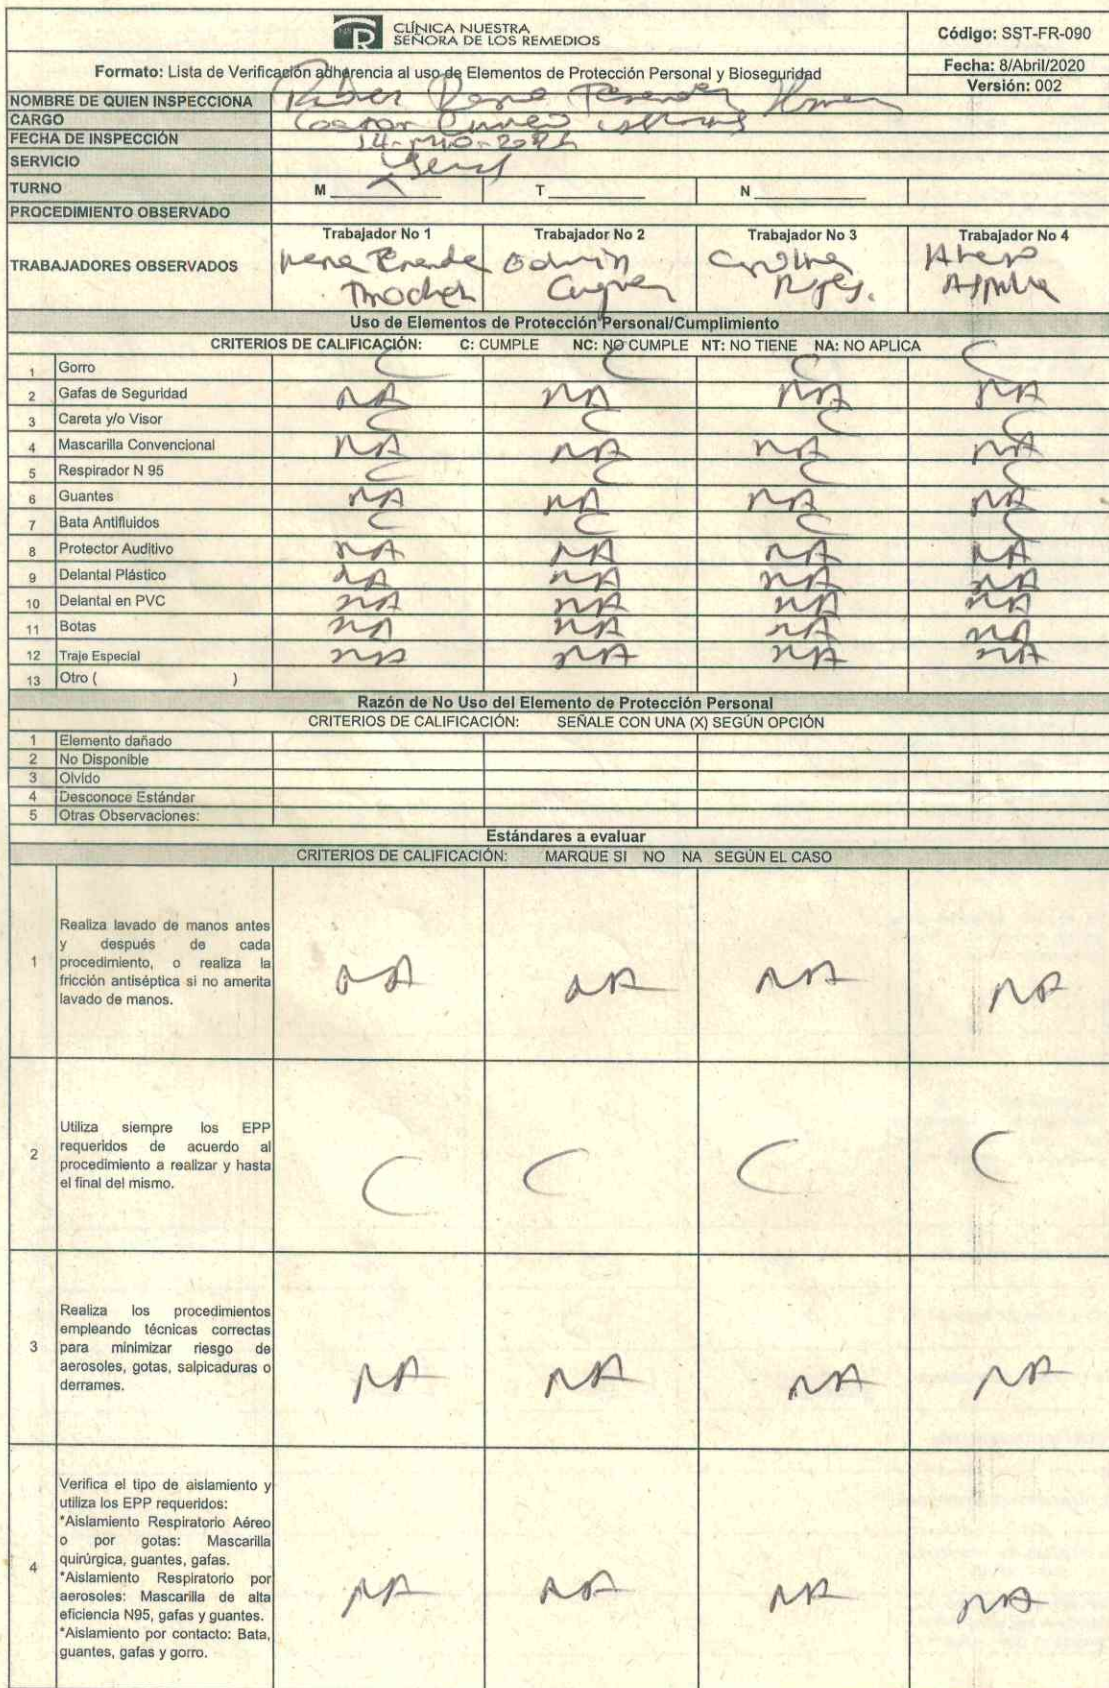 CLÍNICA NUESTRA
SEÑORA DE LOS REMEDIOS
Código: SST-FR-090
Formato: Lista de Verificación adherencia al uso de Elementos de Protección Personal y Bioseguridad
Fecha: 8/Abril/2020
Versión: 002
NOMBRE DE QUIEN INSPECCIONA
CARGO
FECHA DE INSPECCIÓN
SERVICIO
TURNO M T N
PROCEDIMIENTO OBSERVADO
Trabajador No 1 Trabajador No 2 Trabajador No 3 Trabajador No 4
TRABAJADORES OBSERVADOS
Uso de Elementos de Protección Personal/Cumplimiento
CRITERIOS DE CALIFICACIÓN: C: CUMPLE NC: NO CUMPLE NT: NO TIENE NA: NO APLICA
1 Gorro C C C C
2 Gafas de Seguridad NA NA NA NA
3 Careta y/o Visor C C C C
4 Mascarilla Convencional NA NA NA NA
5 Respirador N 95 C C C C
6 Guantes NA NA NA NA
7 Bata Antifluidos C C C C
8 Protector Auditivo NA NA NA NA
9 Delantal Plástico NA NA NA NA
10 Delantal en PVC NA NA NA NA
11 Botas NA NA NA NA
12 Traje Especial NA NA NA NA
13 Otro ( )
Razón de No Uso del Elemento de Protección Personal
CRITERIOS DE CALIFICACIÓN: SEÑALE CON UNA (X) SEGÚN OPCIÓN
1 Elemento dañado
2 No Disponible
3 Olvido
4 Desconoce Estándar
5 Otras Observaciones:
Estándares a evaluar
CRITERIOS DE CALIFICACIÓN: MARQUE SI NO NA SEGÚN EL CASO
Realiza lavado de manos antes
y después de cada
1 procedimiento, o realiza la
fricción antiséptica si no amerita
lavado de manos.
NA NA NA NA
Utiliza siempre los EPP
requeridos de acuerdo al
2 procedimiento a realizar y hasta
el final del mismo.
C C C C
Realiza los procedimientos
empleando técnicas correctas
3 para minimizar riesgo de
aerosoles, gotas, salpicaduras o
derrames.
NA NA NA NA
Verifica el tipo de aislamiento y
utiliza los EPP requeridos:
*Aislamiento Respiratorio Aéreo
o por gotas: Mascarilla
quirúrgica, guantes, gafas.
4 *Aislamiento Respiratorio por
aerosoles: Mascarilla de alta
eficiencia N95, gafas y guantes.
*Aislamiento por contacto: Bata,
guantes, gafas y gorro.
NA NA NA NA